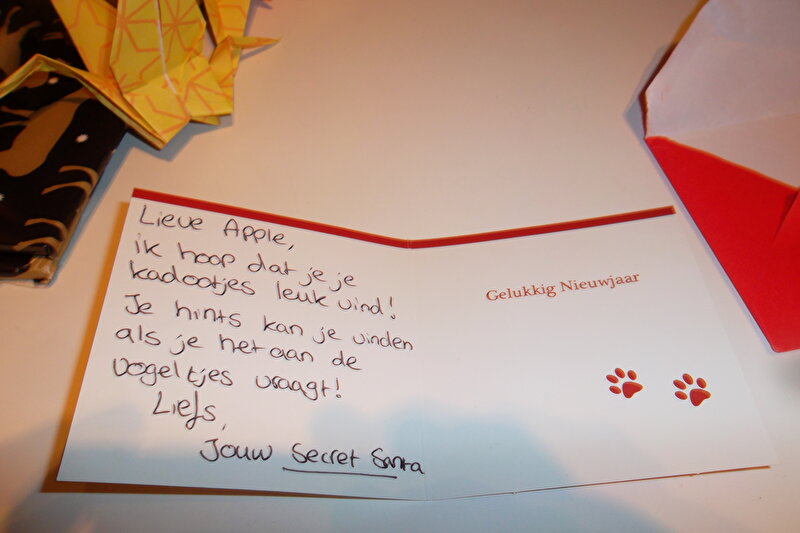 Lieve Apple,
ik hoop dat je je
kadootjes leuk vind!
Je hints kan je vinden
als je het aan de
vogeltjes vraagt!
Liefs,
Jouw Secret Santa
Gelukkig Nieuwjaar